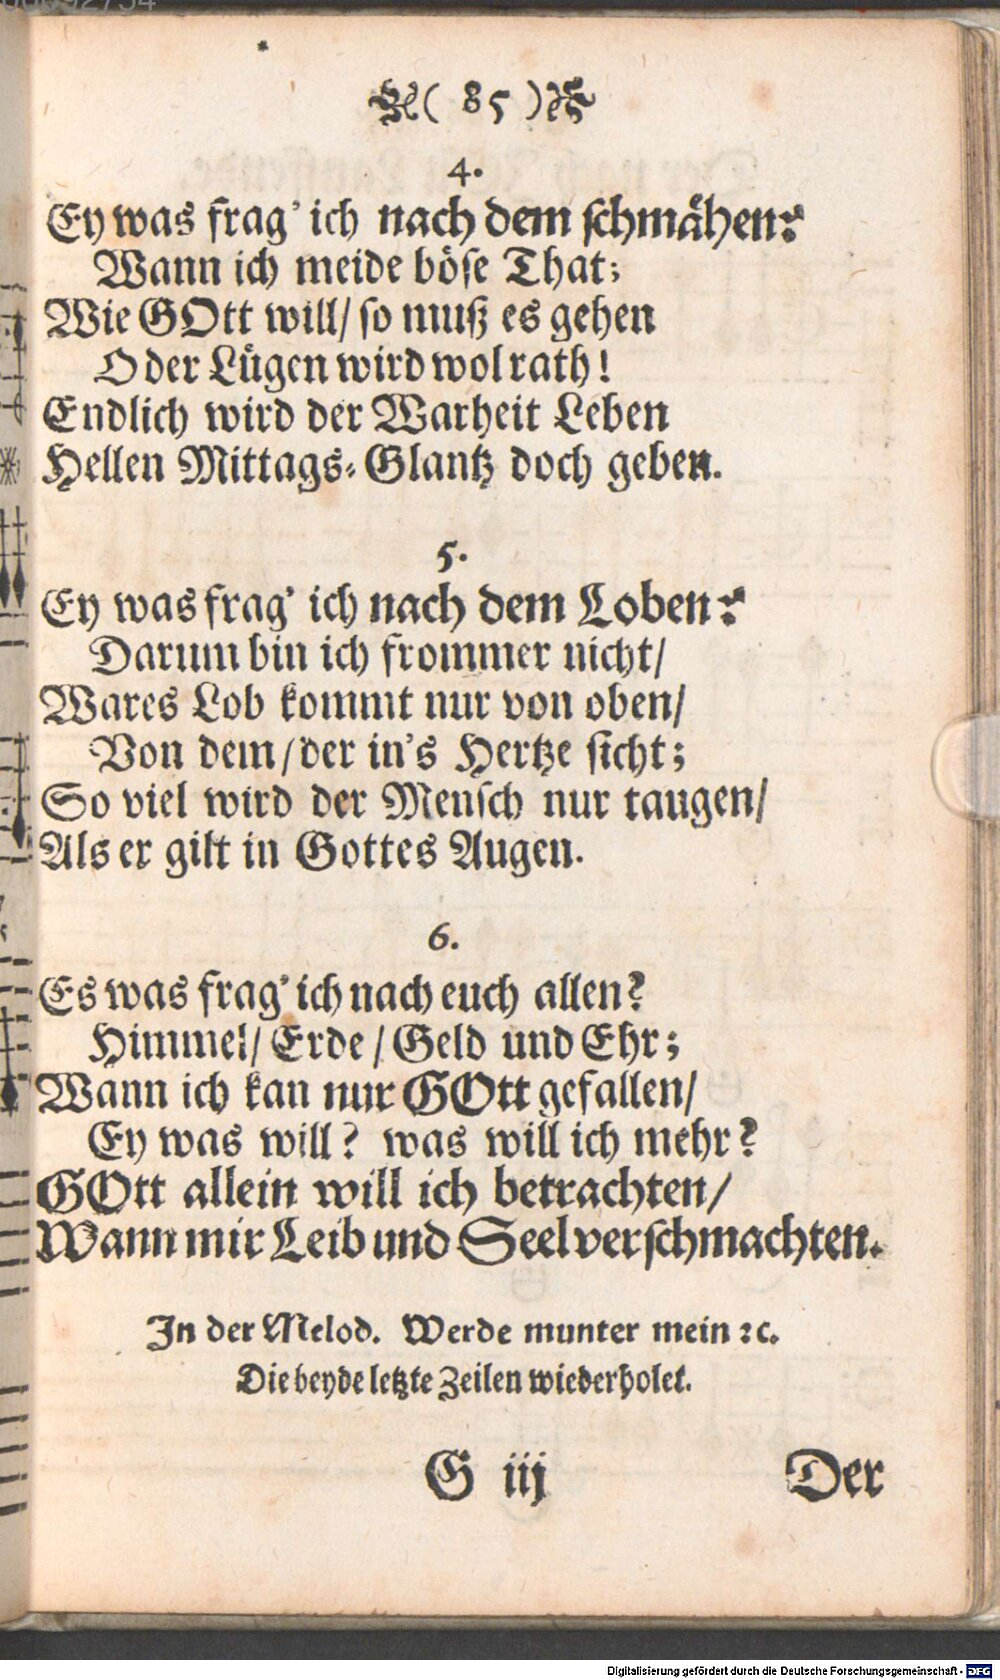 ( 85 )
4.
Ey was frag' ich nach dem schmähen?
Wann ich meide böse That;
Wie GOtt will/ so muß es gehen
O der Lügen wird wol rath!
Endlich wird der Warheit Leben
Hellen Mittags-Glantz doch geben.
5.
Ey was frag' ich nach dem Loben?
Darum bin ich frommer nicht/
Wares Lob kommt nur von oben/
Von dem/ der in's Hertze sicht;
So viel wird der Mensch nur taugen/
Als er gilt in Gottes Augen.
6.
Es was frag' ich nach euch allen?
Himmel/ Erde/ Geld und Ehr;
Wann ich kan nur GOtt gefallen/
Ey was will? was will ich mehr?
GOtt allein will ich betrachten/
Wann mir Leib und Seel verschmachten.
In der Melod. Werde munter mein ꝛc.
Die beyde letzte Zeilen wiederholet.
G iij
Der
Digitalisierung gefördert durch die Deutsche Forschungsgemeinschaft - DFG